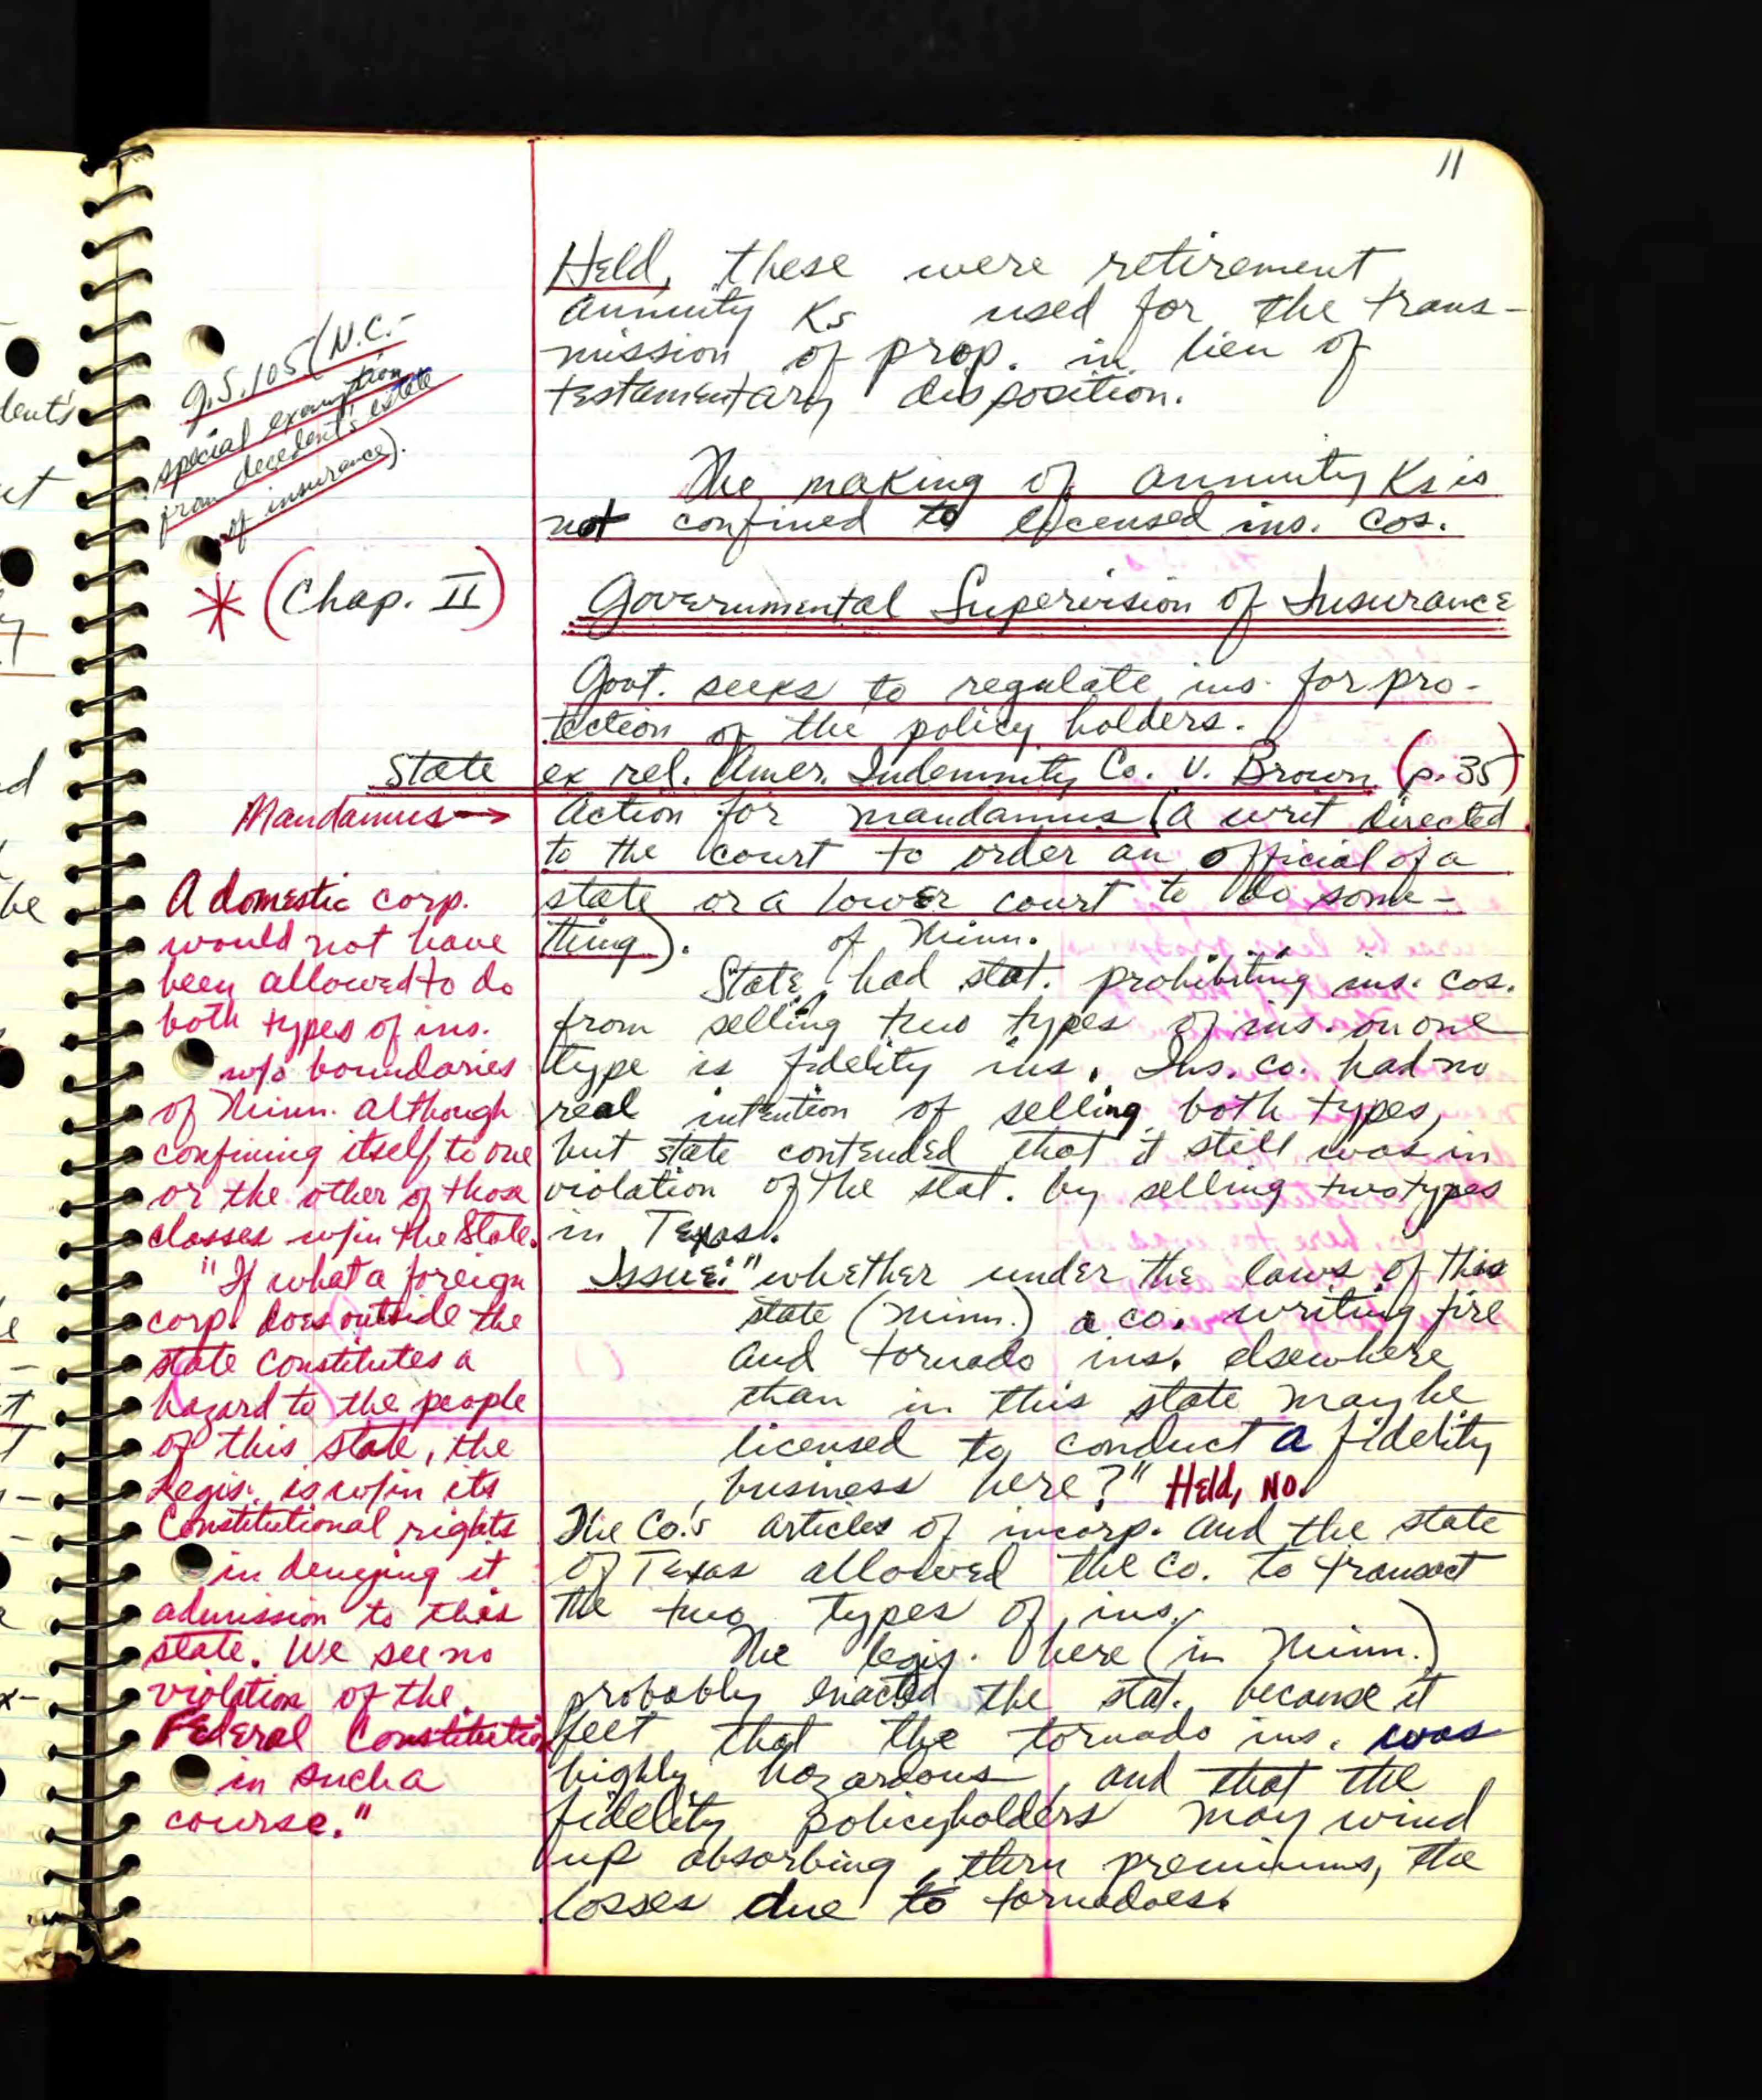 11
Held, these were retirement
annuity Ks used for the trans-
mission of prop. in lieu of
testamentary disposition.
G.S. 105 (N.C.-
special exemption
from decedent's estate
of insurance).
The making of annuity Ks is
not confined to licensed ins. cos.
* (Chap. II) Governmental Supervision of Insurance
Govt. seeks to regulate ins. for pro-
tection of the policy holders.
State ex rel. Amer. Indemnity Co. v. Brown (p. 35)
Mandamus → Action for mandamus (a writ directed
to the court to order an official of a
state or a lower court to do some-
thing).
State of Minn. had stat. prohibiting ins. cos.
from selling two types of ins. on one
type is fidelity ins. Ins. co. had no
real intention of selling both types,
but state contended that it still was in
violation of the stat. by selling two types
in Texas.
Issue: "whether under the laws of this
state (Minn.) a co. writing fire
and tornado ins. elsewhere
than in this state may be
licensed to conduct a fidelity
business here?" Held, No.
The Co.'s articles of incorp. and the state
of Texas allowed the Co. to transact
the two types of ins.
The legis. here (in Minn.)
probably enacted the stat. because it
feet that the tornado ins. was
highly hazardous, and that the
fidelity policyholders may wind
up absorbing, thru premiums, the
losses due to tornadoes.
A domestic corp.
would not have
been allowed to do
both types of ins.
w/o boundaries
of Minn. although
confining itself to one
or the other of those
classes w/in the State.
"If what a foreign
corp. does outside the
state constitutes a
hazard to the people
of this state, the
Legis. is w/in its
Constitutional rights
in denying it
admission to this
state. We see no
violation of the
Federal Constitution
in such a
course."